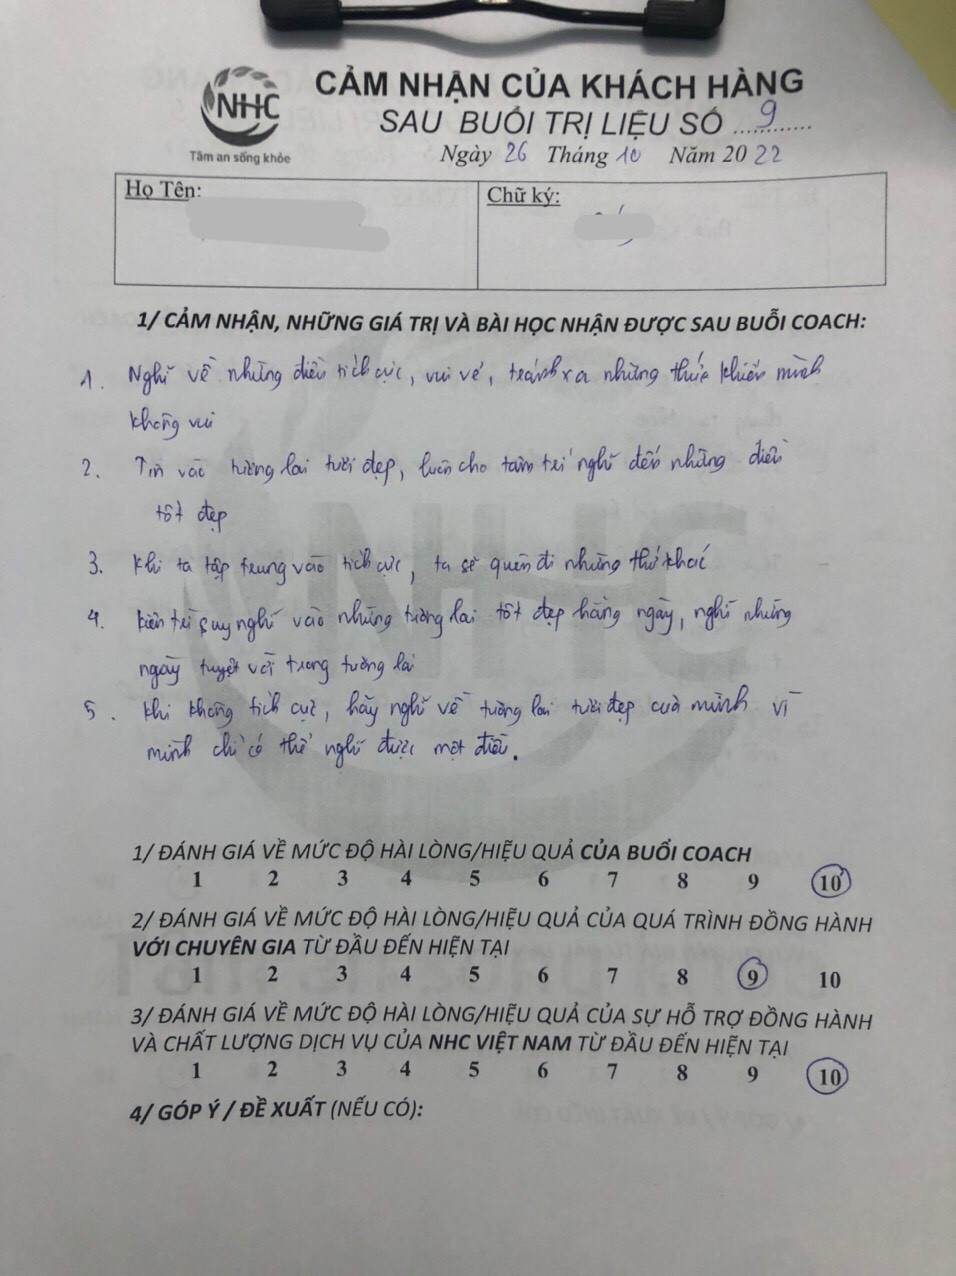 NHC
Tâm an sống khỏe
CẢM NHẬN CỦA KHÁCH HÀNG
SAU BUỔI TRỊ LIỆU SỐ 9
Ngày 26 Tháng 10 Năm 2022
Họ Tên:
Chữ ký:
1/ CẢM NHẬN, NHỮNG GIÁ TRỊ VÀ BÀI HỌC NHẬN ĐƯỢC SAU BUỔI COACH:
1. Nghĩ về những điều tích cực, vui vẻ, tránh xa những thứ khiến mình
không vui
2. Tin vào tương lai tươi đẹp, luôn cho tâm trí nghĩ đến những điều
tốt đẹp
3. Khi ta tập trung vào tích cực, ta sẽ quên đi những thứ khác
4. Kiên trì suy nghĩ vào những tương lai tốt đẹp hằng ngày, nghĩ những
ngày tuyệt vời trong tương lai
5. Khi không tích cực, hãy nghĩ về tương lai tươi đẹp của mình vì
mình chỉ có thể nghĩ được một điều.
NHC
1/ ĐÁNH GIÁ VỀ MỨC ĐỘ HÀI LÒNG/HIỆU QUẢ CỦA BUỔI COACH
1 2 3 4 5 6 7 8 9 10
2/ ĐÁNH GIÁ VỀ MỨC ĐỘ HÀI LÒNG/HIỆU QUẢ CỦA QUÁ TRÌNH ĐỒNG HÀNH
VỚI CHUYÊN GIA TỪ ĐẦU ĐẾN HIỆN TẠI
1 2 3 4 5 6 7 8 9 10
3/ ĐÁNH GIÁ VỀ MỨC ĐỘ HÀI LÒNG/HIỆU QUẢ CỦA SỰ HỖ TRỢ ĐỒNG HÀNH
VÀ CHẤT LƯỢNG DỊCH VỤ CỦA NHC VIỆT NAM TỪ ĐẦU ĐẾN HIỆN TẠI
1 2 3 4 5 6 7 8 9 10
4/ GÓP Ý / ĐỀ XUẤT (NẾU CÓ):